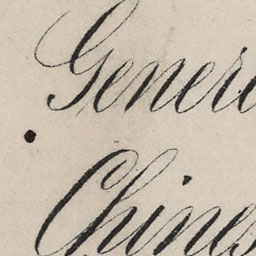 Gener
Chines